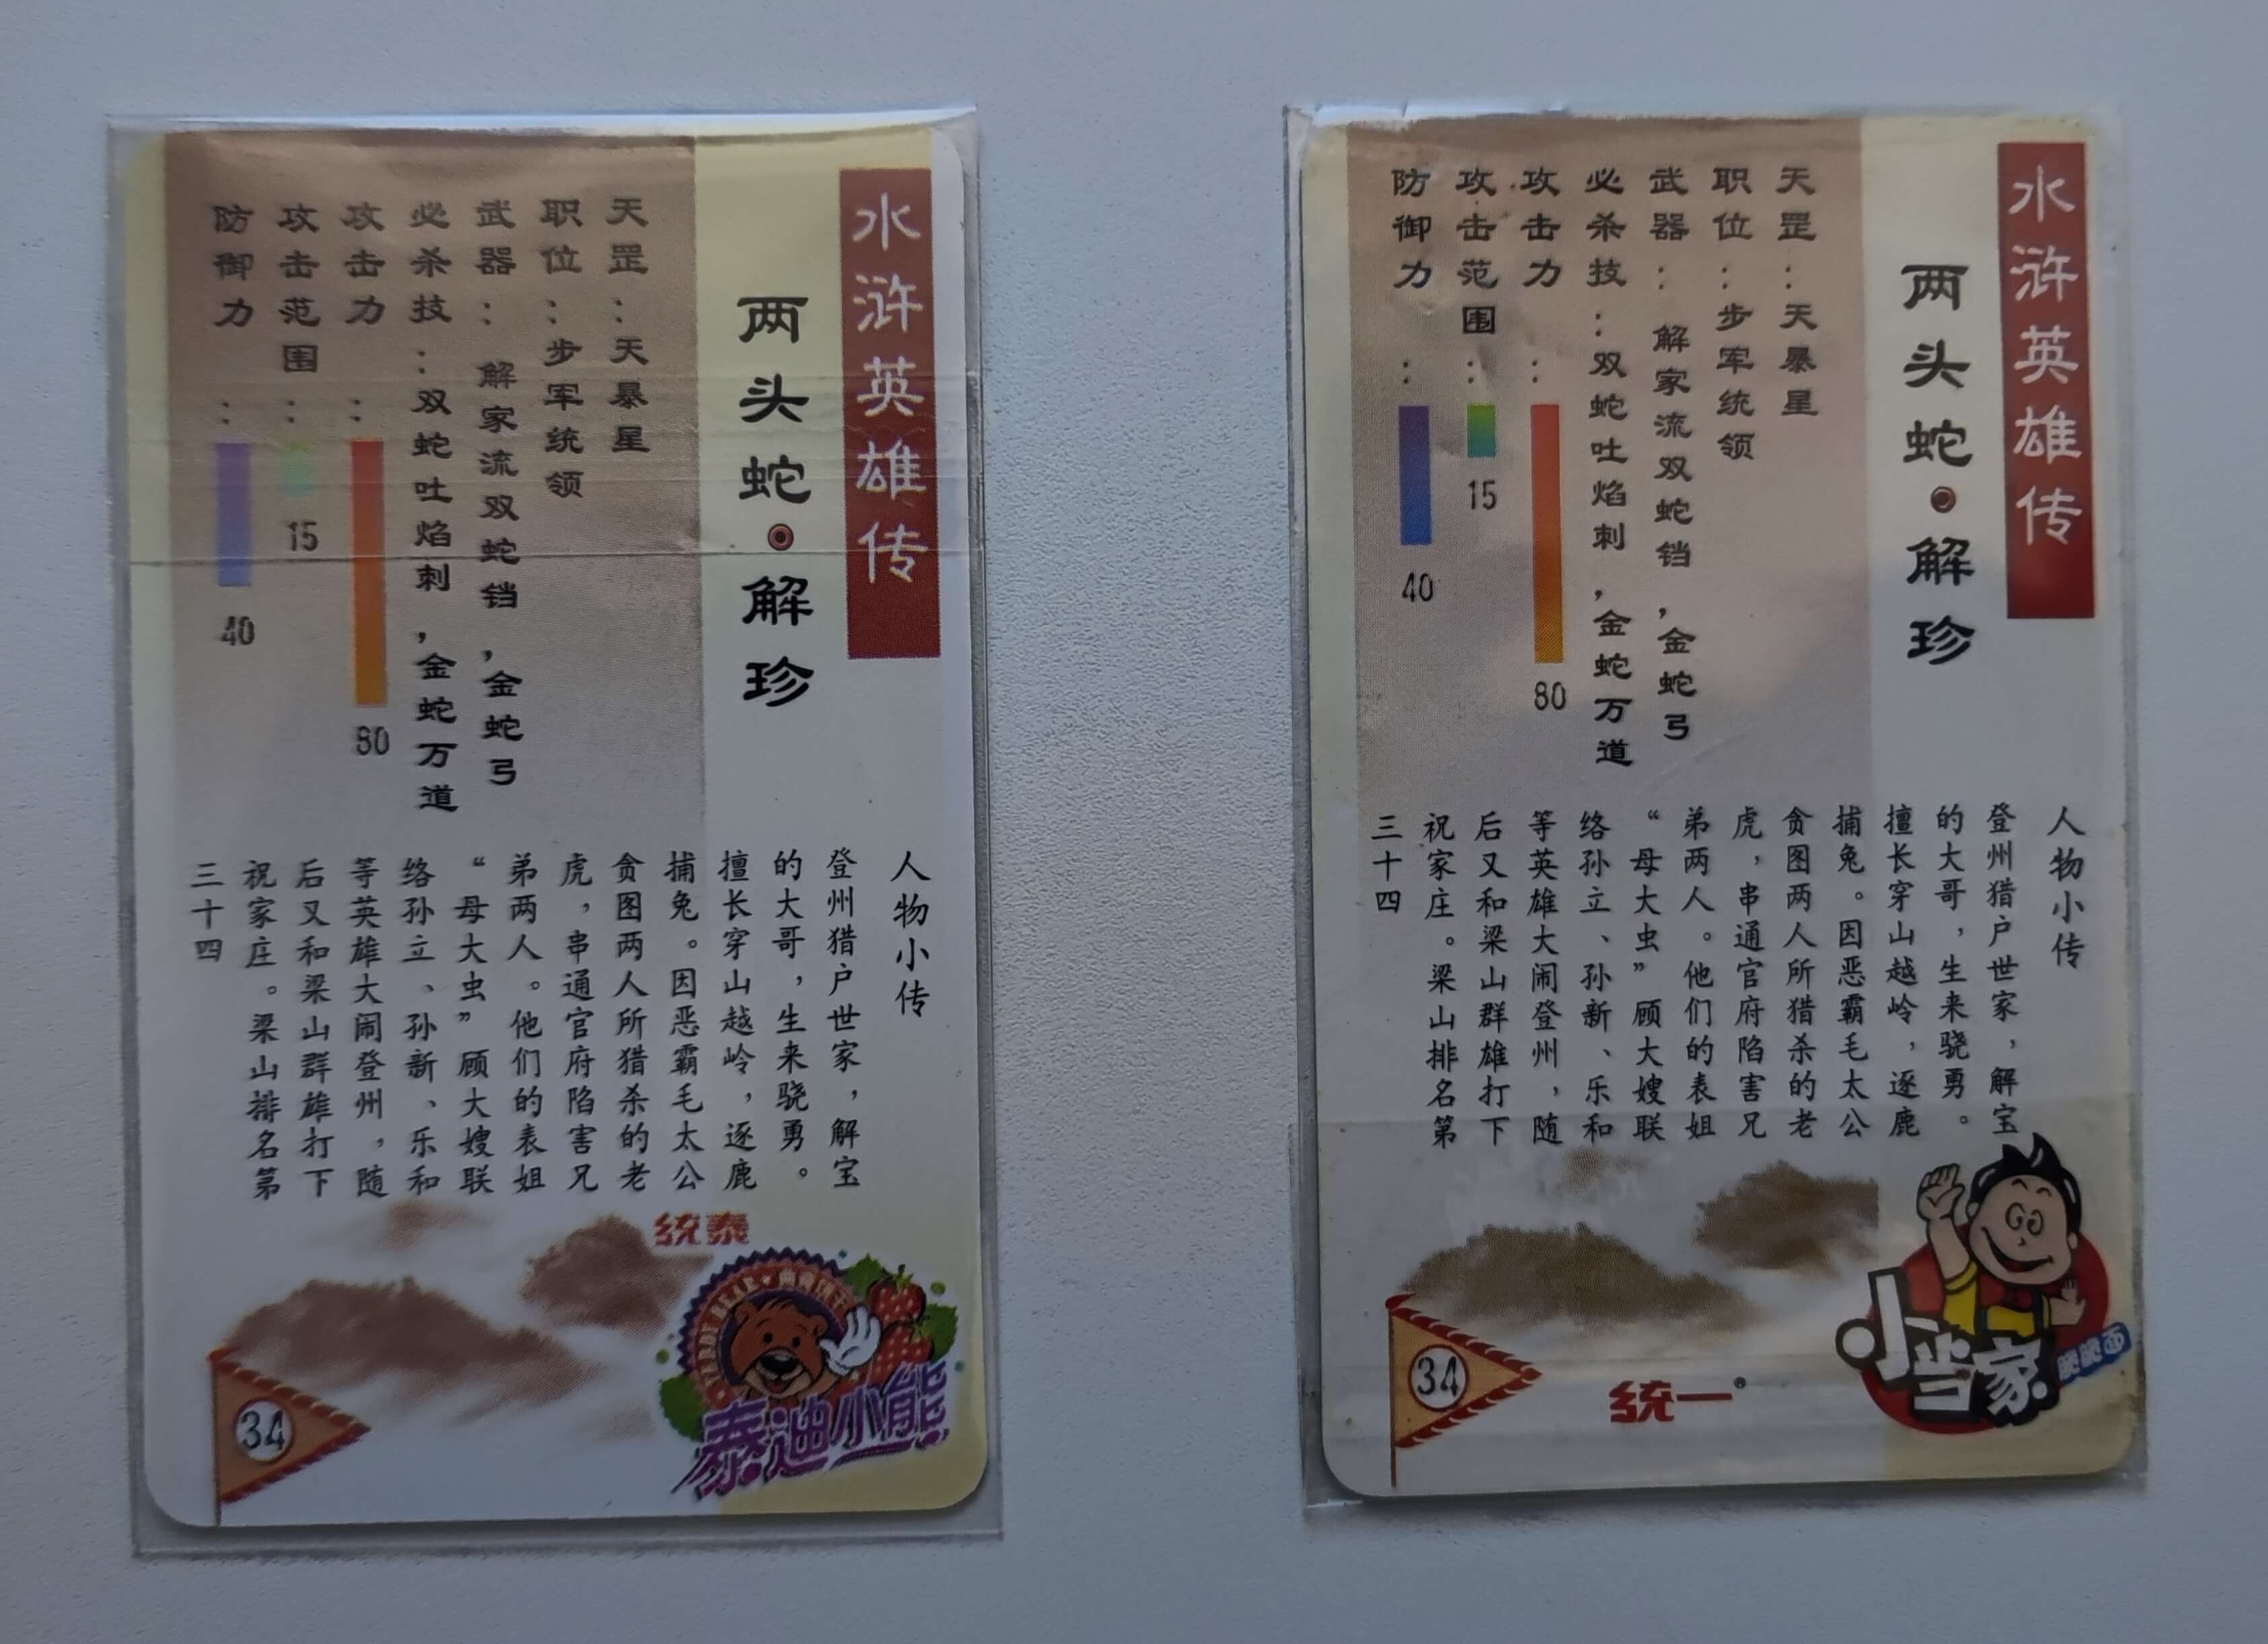 水浒英雄传
两头蛇·解珍
天罡：天暴星
职位：步军统领
武器：解家流双蛇铛，金蛇弓
必杀技：双蛇吐焰刺，金蛇万道
攻击力：
80
攻击范围：
15
防御力：
40
人物小传
登州猎户世家，解宝
的大哥，生来骁勇。
擅长穿山越岭，逐鹿
捕兔。因恶霸毛太公
贪图两人所猎杀的老
虎，串通官府陷害兄
弟两人。他们的表姐
“母大虫”顾大嫂联
络孙立、孙新、乐和
等英雄大闹登州，随
后又和梁山群雄打下
祝家庄。梁山排名第
三十四
统泰
TEDDY BEAR
泰迪小熊
34
水浒英雄传
两头蛇·解珍
天罡：天暴星
职位：步军统领
武器：解家流双蛇铛，金蛇弓
必杀技：双蛇吐焰刺，金蛇万道
攻击力：
80
攻击范围：
15
防御力：
40
人物小传
登州猎户世家，解宝
的大哥，生来骁勇。
擅长穿山越岭，逐鹿
捕兔。因恶霸毛太公
贪图两人所猎杀的老
虎，串通官府陷害兄
弟两人。他们的表姐
“母大虫”顾大嫂联
络孙立、孙新、乐和
等英雄大闹登州，随
后又和梁山群雄打下
祝家庄。梁山排名第
三十四
小当家
脆脆面
统一®
34